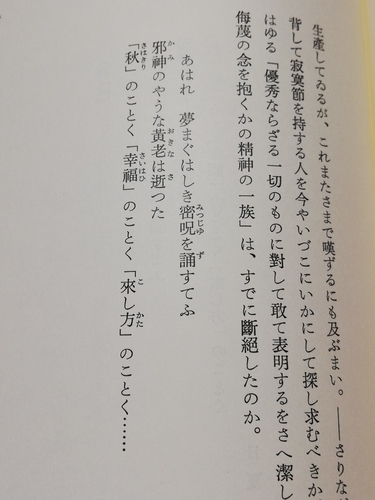 生產してゐるが、これまたさまで嘆ずるにも及ぶまい。――さりなが
背して寂寞節を持する人を今やいづこにいかにして探し求むべきか
はゆる「優秀ならざる一切のものに對して敢て表明するをさへ潔し
侮蔑の念を抱くかの精神の一族」は、すでに斷絕したのか。
あはれ　夢まぐはしき密呪を誦すてふ
邪神のやうな黃老は逝つた
「秋」のことく「幸福」のことく「來し方」のことく……